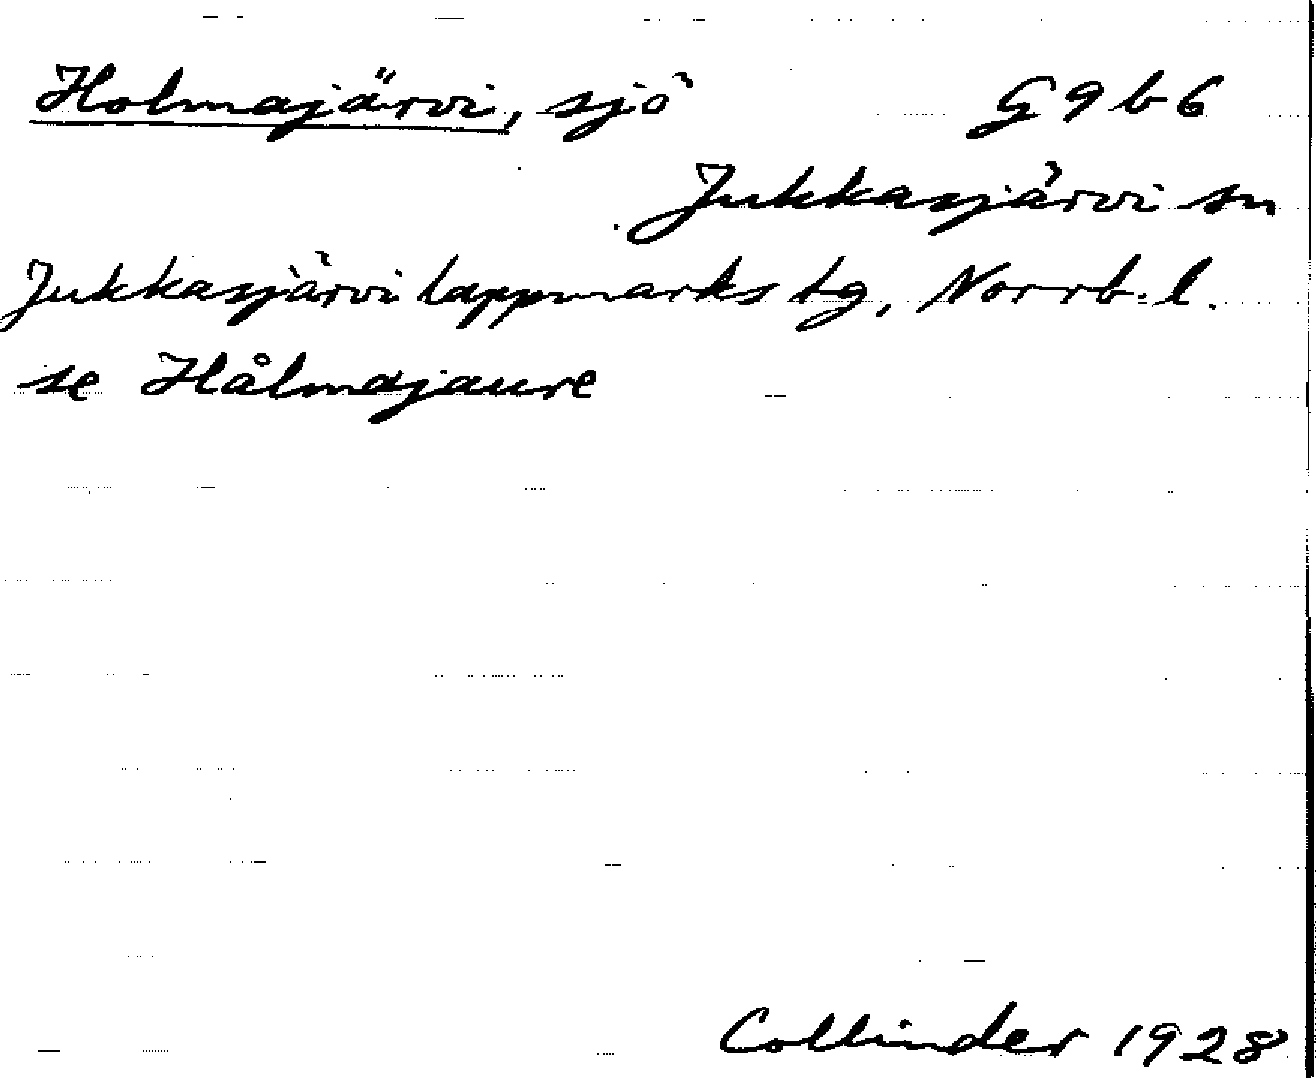 Holmajärvi, sjö G9b6
Jukkasjärvi sn
Jukkasjärvi lappmarks tg, Norrb. l.
se Hålmajaure
Collinder 1928